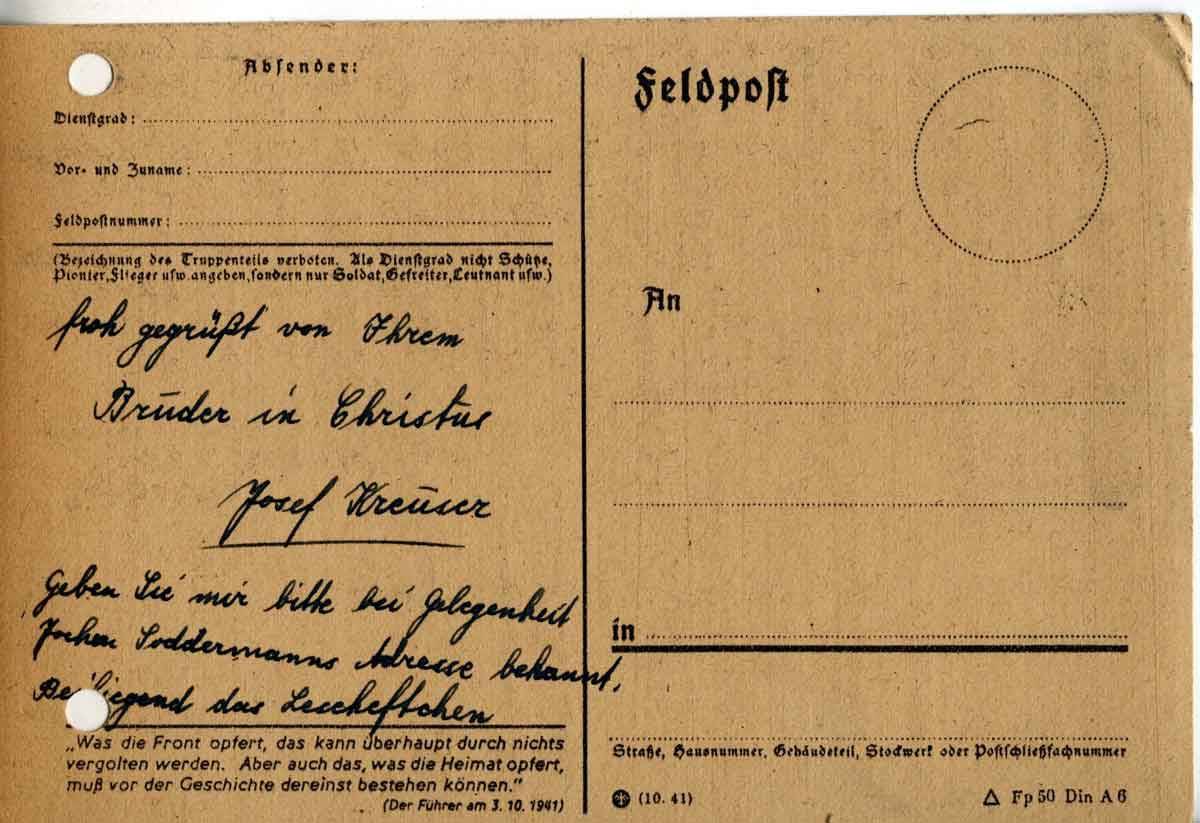 Absender:
Dienstgrad:
Vor- und Zuname:
Feldpostnummer:
(Bezeichnung des Truppenteils verboten. Als Dienstgrad nicht Schütze,
Pionier, Flieger usw. angeben, sondern nur Soldat, Gefreiter, Leutnant usw.)
froh gegrüßt von Ihrem
Bruder in Christus
Josef Kreuser
Geben Sie mir bitte bei Gelegenheit
Jochen Soddermanns Adresse bekannt.
Beiliegend das Leseheftchen
„Was die Front opfert, das kann überhaupt durch nichts
vergolten werden. Aber auch das, was die Heimat opfert,
muß vor der Geschichte dereinst bestehen können.“
(Der Führer am 3. 10. 1941)
Feldpost
An
in
Straße, Hausnummer, Gebäudeteil, Stockwerk oder Postschließfachnummer
(10. 41)
Fp 50 Din A 6